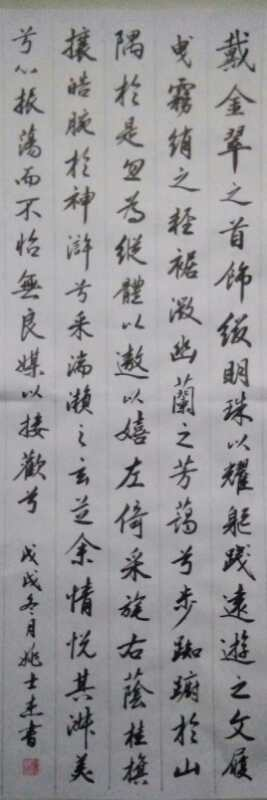 戴金翠之首飾綴明珠以耀軀踐遠遊之文履
曳霧綃之輕裾微幽蘭之芳藹兮步踟躕於山
隅於是忽焉縱體以遨以嬉左倚采旄右蔭桂旗
攘皓腕於神滸兮采湍瀨之玄芝余情悅其淑美
兮心振蕩而不怡無良媒以接歡兮
戊戌冬月姚士杰書